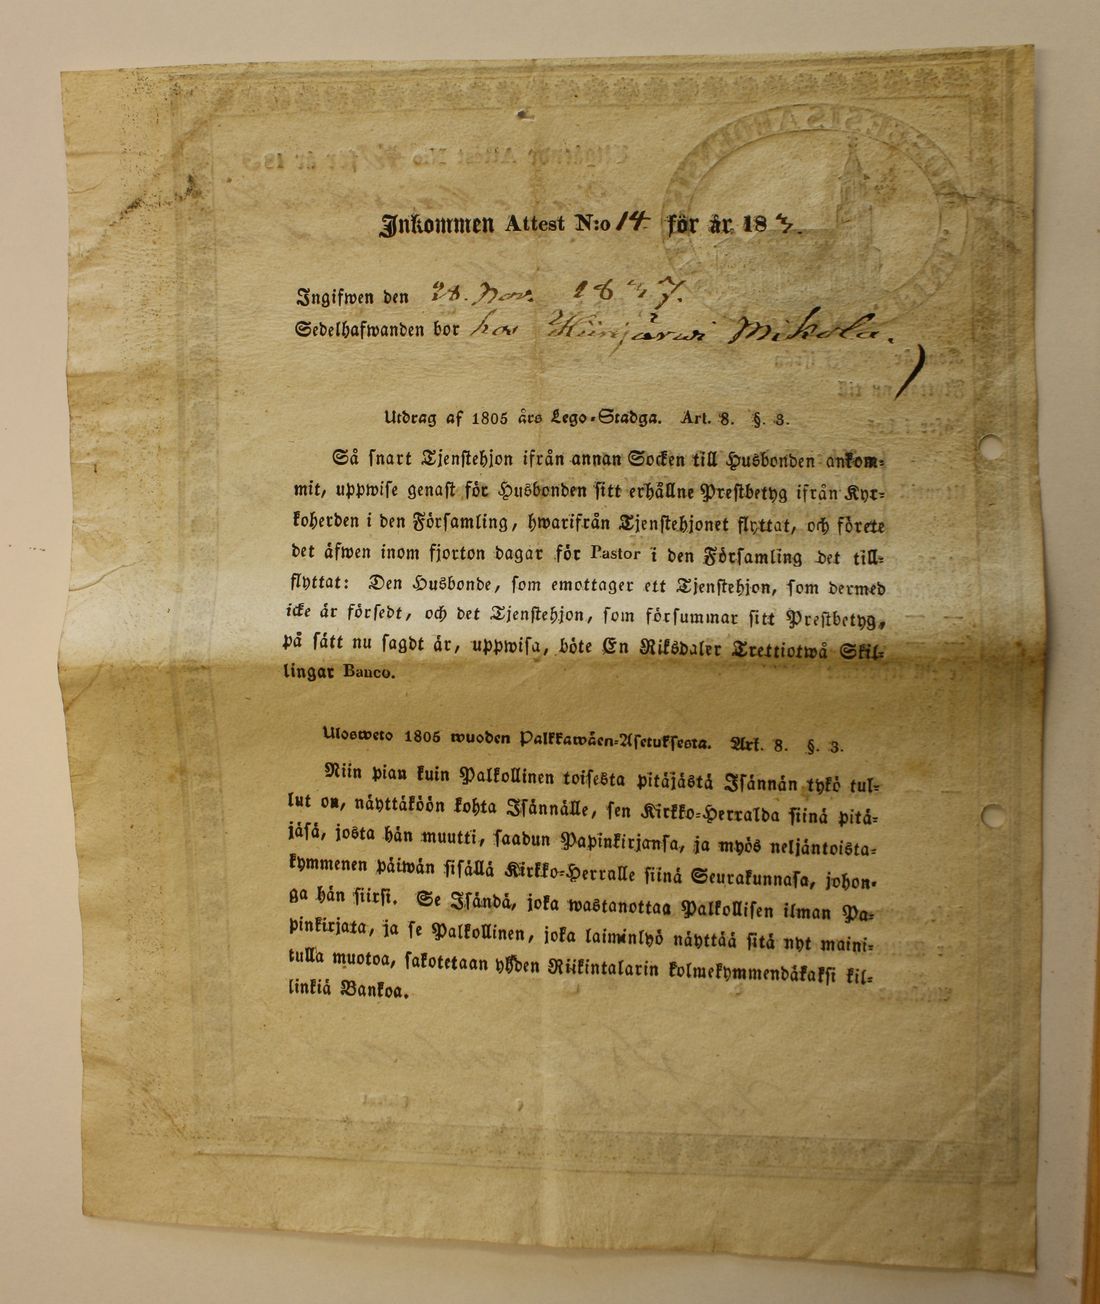 Inkommen Attest N:o 14 för år 183
Ingifwen den 28. Nov. 1837.
Sedelhafwanden bor hos Kiinjärwi Mikola.
Utdrag af 1805 års Lego-Stadga. Art. 8. §. 3.
Så snart Tjenstehjon ifrån annan Socken till Husbonden ankom-
mit, uppwise genast för Husbonden sitt erhållne Prestbetyg ifrån Kyr-
koherden i den Församling, hwarifrån Tjenstehjonet flyttat, och förete
det äfwen inom fjorton dagar för Pastor i den Församling det till-
flyttat: Den Husbonde, som emottager ett Tjenstehjon, som dermed
icke är försedt, och det Tjenstehjon, som försummar sitt Prestbetyg,
på sätt nu sagdt är, uppwisa, böte En Riksdaler Trettiotwå Skil-
lingar Banco.
Ulosweto 1805 wuoden Palkkawäen-Asetuksesta. Art. 8. §. 3.
Niin pian kuin Palkollinen toisesta pitäjästä Isännän tykö tul-
lut on, näyttäköön kohta Isännälle, sen Kirkko-Herralda siinä pitä-
jäsä, josta hän muutti, saadun Papinkirjansa, ja myös neljäntoista-
kymmenen päiwän sisällä Kirkko-Herralle siinä Seurakunnasa, johon-
ga hän siirsi. Se Isändä, joka wastanottaa Palkollisen ilman Pa-
pinkirjata, ja se Palkollinen, joka laiminlyö näyttää sitä nyt maini-
tulla muotoa, sakotetaan yhden Riikintalarin kolmekymmendäkaksi kil-
linkiä Bankoa.